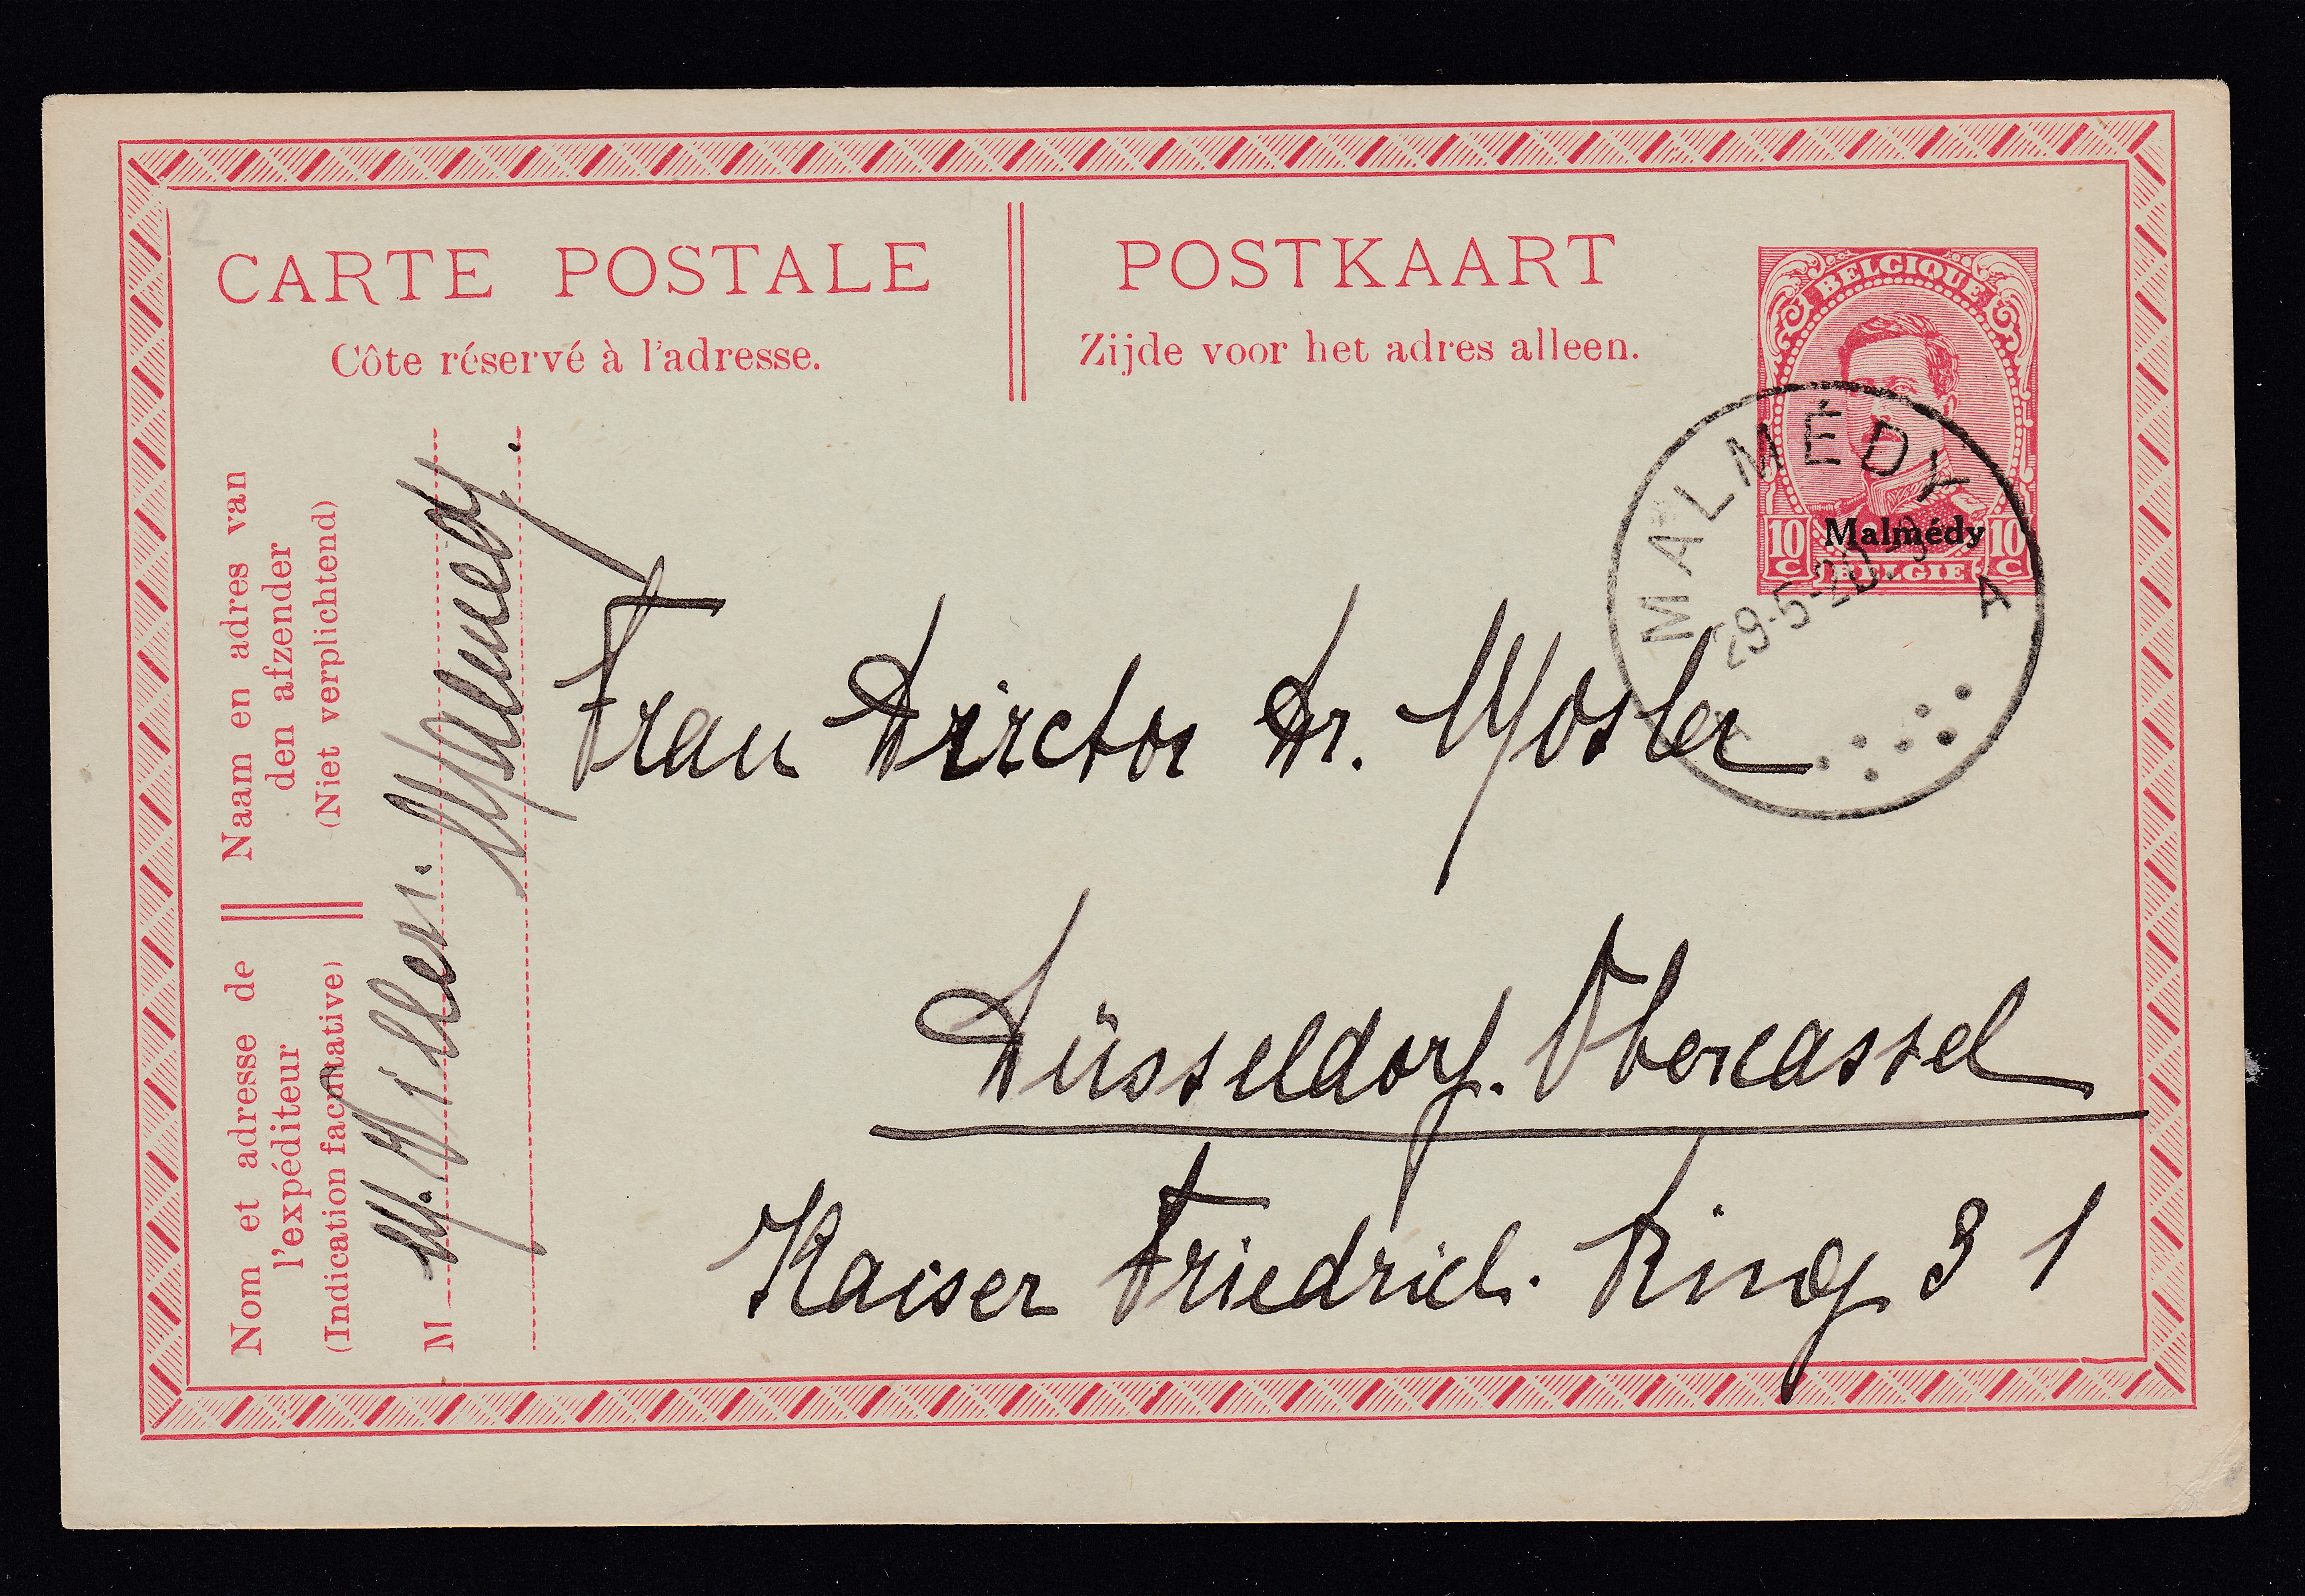 CARTE POSTALE
Côte réservé à l'adresse.
POSTKAART
Zijde voor het adres alleen.
BELGIQUE
10 C
10 C
BELGIË
Malmédy
MALMÉDY
29-5-20
A
Naam en adres van
den afzender
(Niet verplichtend)
Nom et adresse de
l'expéditeur
(Indication facultative)
M
M. Villers. Malmedy.
Frau Director Dr. Mosler
Düsseldorf. Obercassel
Kaiser Friedrich. Ring 31